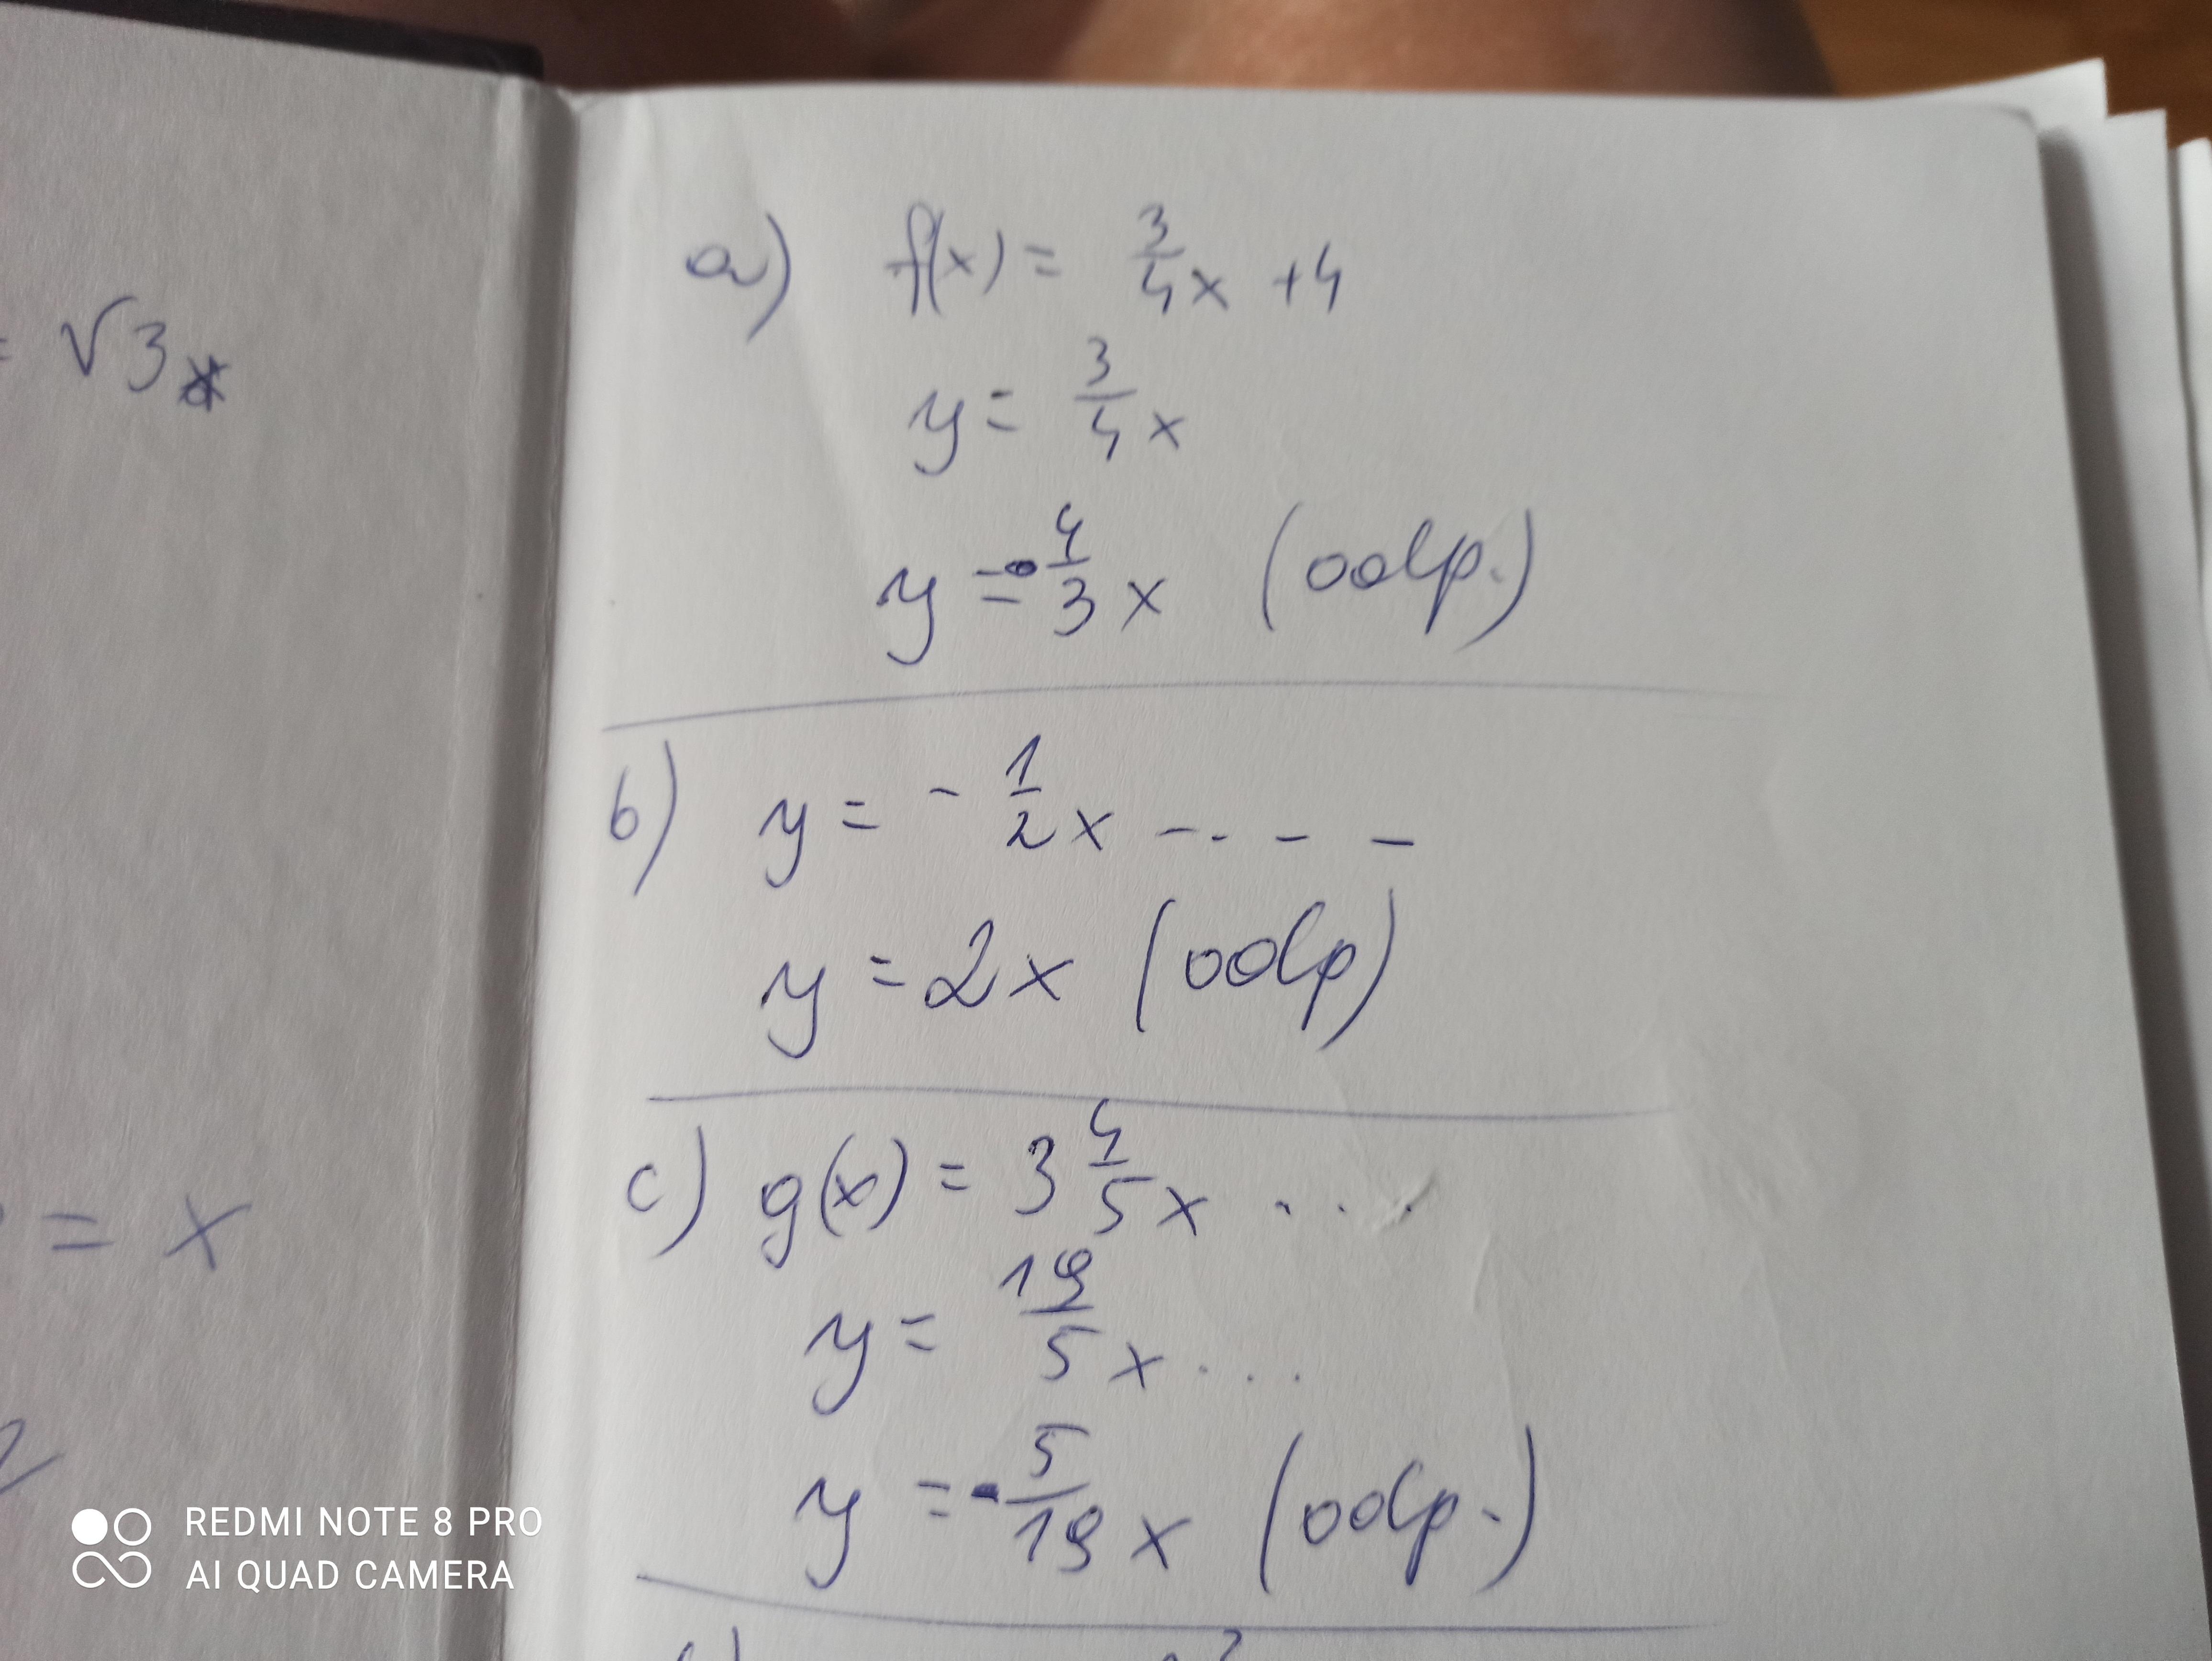 = √3
= x
a) f(x) = 3/4 x + 4
y = 3/4 x
y = - 4/3 x (odp.)
b) y = - 1/2 x - - - -
y = 2x (odp)
c) g(x) = 3 4/5 x ...
y = 19/5 x ...
y = - 5/19 x (odp.)
REDMI NOTE 8 PRO
AI QUAD CAMERA